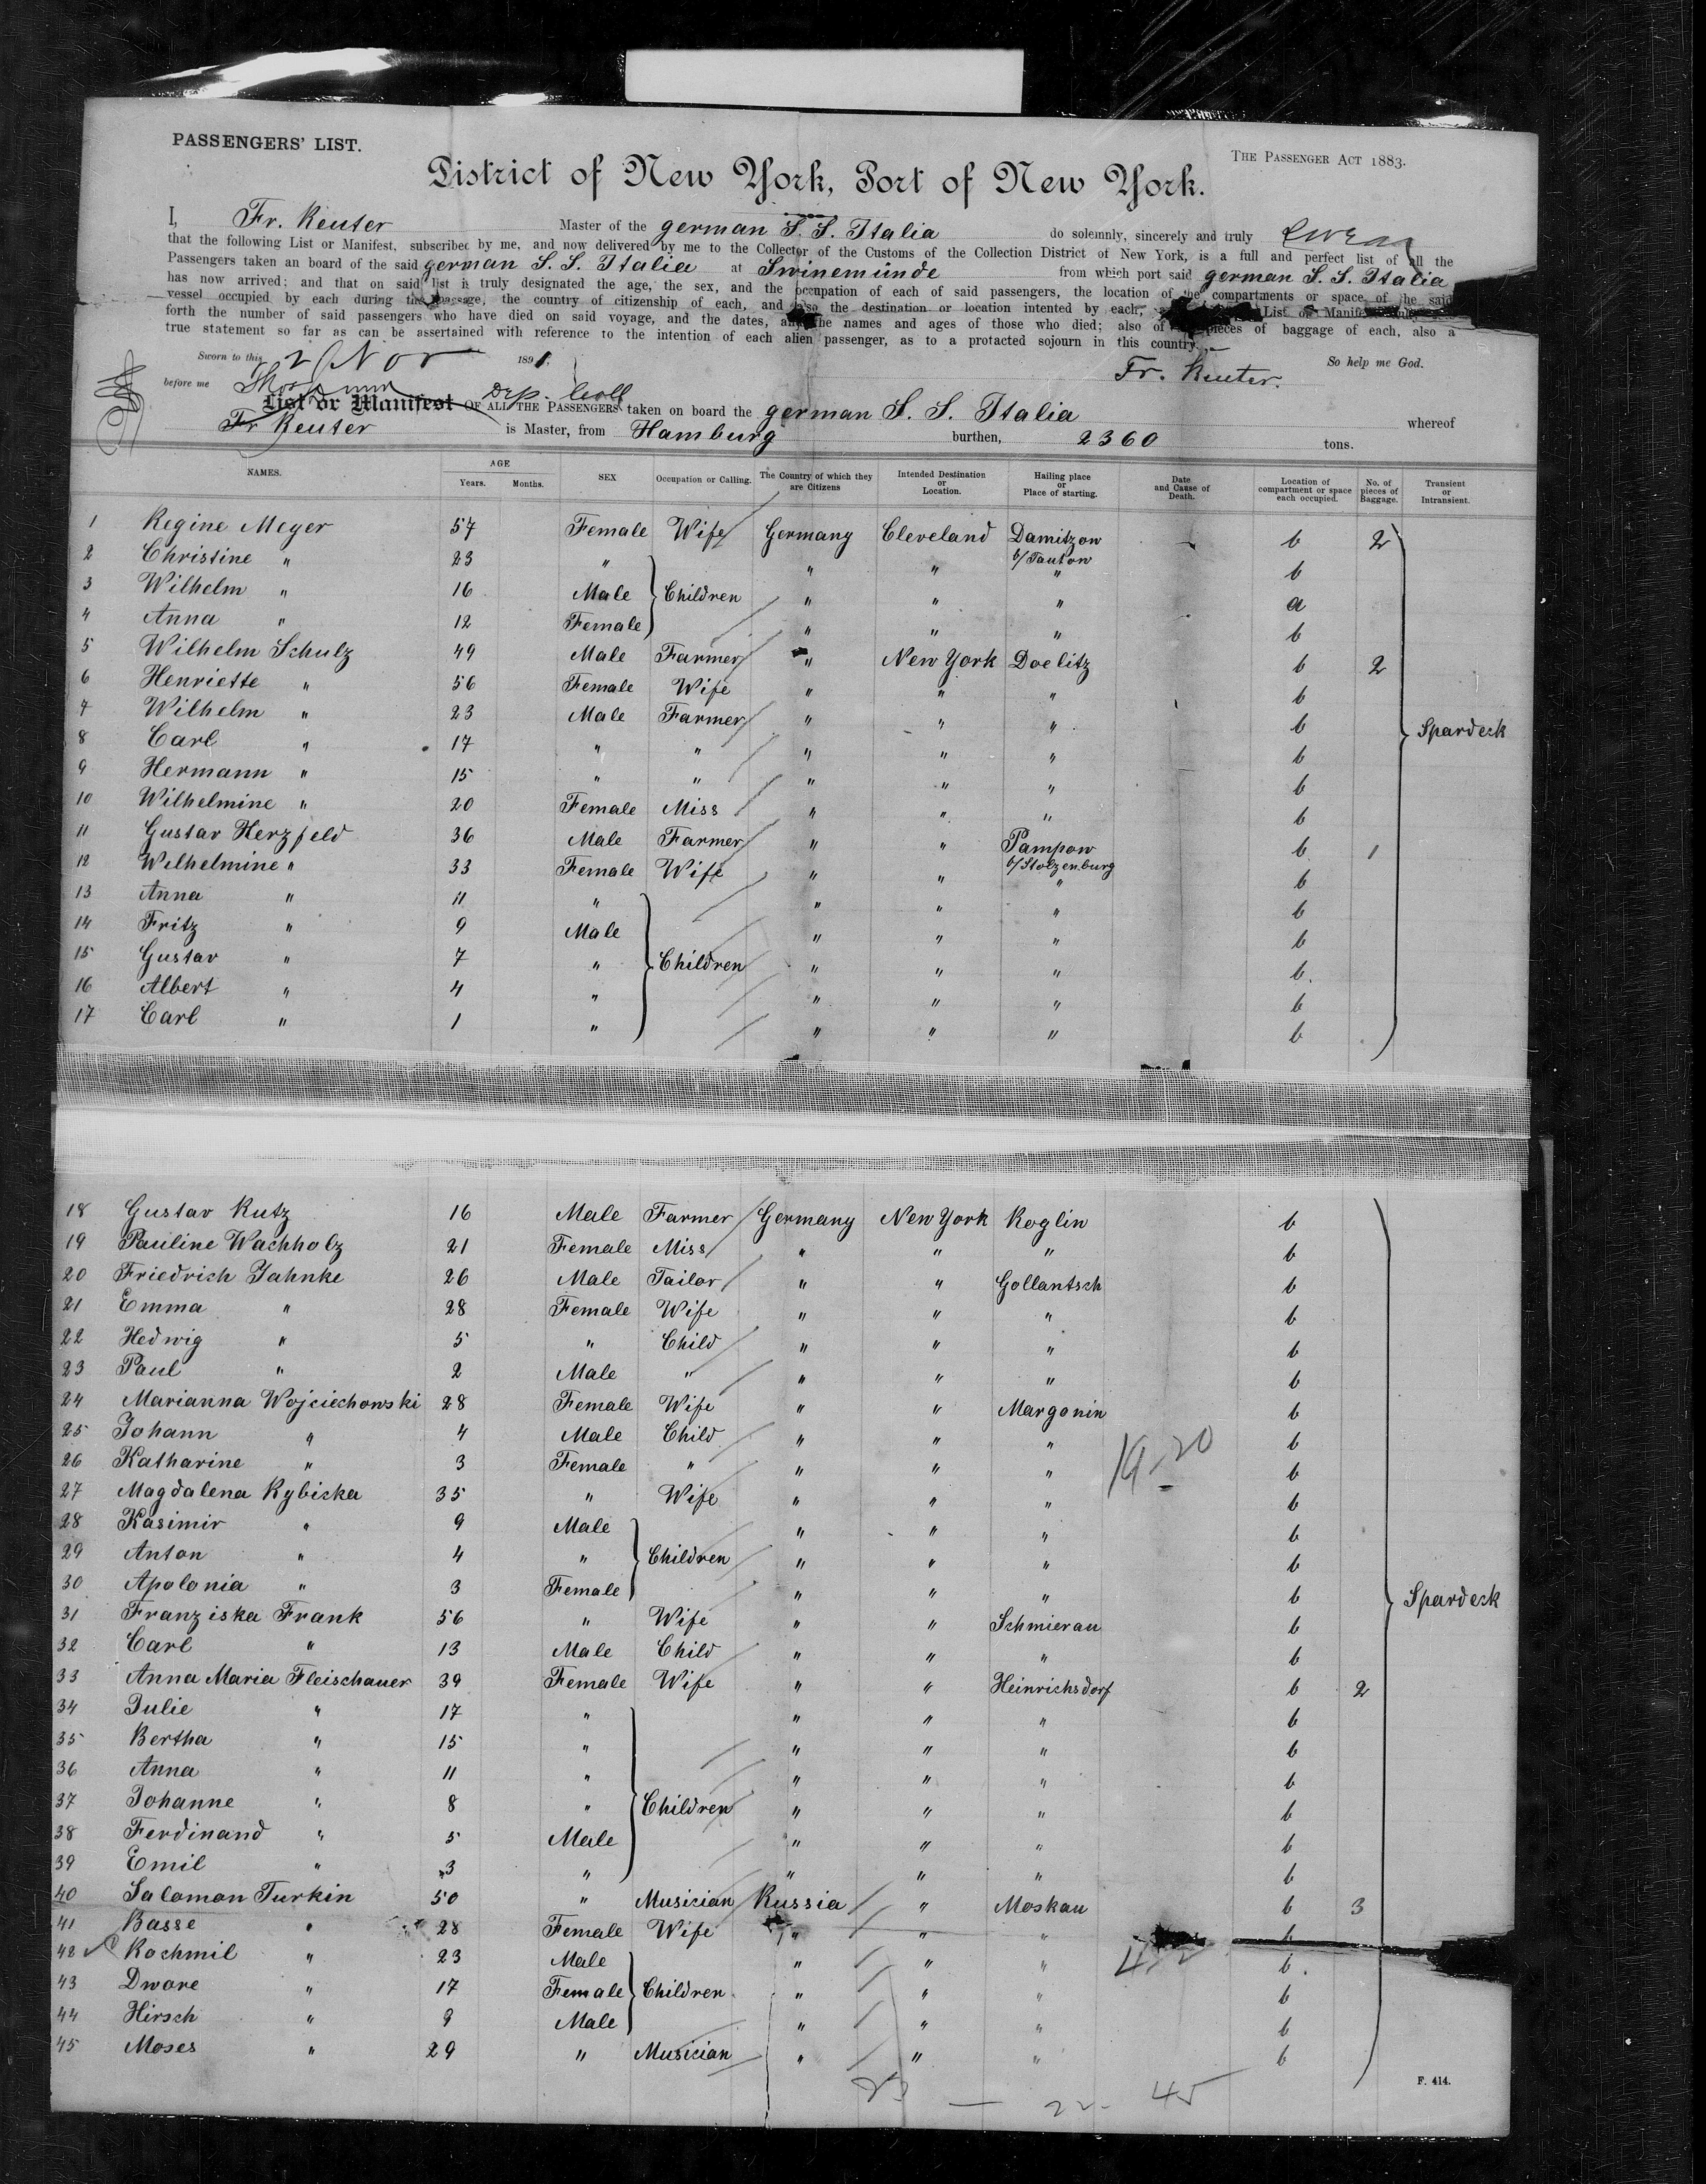 PASSENGERS' LIST.
THE PASSENGER ACT 1883.
District of New York, Port of New York.
I, Fr. Reuter Master of the german S. S. Italia do solemnly, sincerely and truly swear
that the following List or Manifest, subscribed by me, and now delivered by me to the Collector of the Customs of the Collection District of New York, is a full and perfect list of all the
Passengers taken an board of the said german S. S. Italia at Swinemünde from which port said german S. S. Italia
has now arrived; and that on said list is truly designated the age, the sex, and the occupation of each of said passengers, the location of the compartments or space of the said
vessel occupied by each during the passage, the country of citizenship of each, and also the destination or location intented by each; List or Manifest
forth the number of said passengers who have died on said voyage, and the dates, and the names and ages of those who died; also of pieces of baggage of each, also a
true statement so far as can be assertained with reference to the intention of each alien passenger, as to a protacted sojourn in this country.
Sworn to this 2 Nov 1891. So help me God.
Fr. Reuter.
before me Dep. Coll
List or Manifest OF ALL THE PASSENGERS taken on board the german S. S. Italia whereof
Fr Reuter is Master, from Hamburg burthen, 2360 tons.
NAMES. AGE Years. Months. SEX Occupation or Calling. The Country of which they are Citizens Intended Destination or Location. Hailing place or Place of starting. Date and Cause of Death. Location of compartment or space each occupied. No. of pieces of Baggage. Transient or Intransient.
1 Regine Meyer 57 Female Wife Germany Cleveland Damitzow b/Tantow b 2
2 Christine " 23 " " " " b
3 Wilhelm " 16 Male Children " " " a
4 Anna " 12 Female " " " b
5 Wilhelm Schulz 49 Male Farmer " New York Doelitz b 2
6 Henriette " 56 Female Wife " " " b
7 Wilhelm " 23 Male Farmer " " " b Spardeck
8 Carl " 17 " " " " " b
9 Hermann " 15 " " " " " b
10 Wilhelmine " 20 Female Miss " " " b
11 Gustav Herzfeld 36 Male Farmer " " Pampow b/Stolzenburg b 1
12 Wilhelmine " 33 Female Wife " " " b
13 Anna " 11 " " " " b
14 Fritz " 9 Male " " " b
15 Gustav " 7 " Children " " " b.
16 Albert " 4 " " " " b
17 Carl " 1 " " " " b
18 Gustav Kutz 16 Male Farmer Germany New York Roglin b
19 Pauline Wachholz 21 Female Miss " " " b
20 Friedrich Jahnke 26 Male Tailor " " Gollantsch b
21 Emma " 28 Female Wife " " " b
22 Hedwig " 5 " Child " " " b
23 Paul " 2 Male " " " " b
24 Marianna Wojciechowski 28 Female Wife " " Margonin b
25 Johann " 4 Male Child " " " b
26 Katharine " 3 Female " " " " 19-20 b
27 Magdalena Rybicka 35 " Wife " " " b
28 Kasimir " 9 Male " " " b
29 Anton " 4 " Children " " " b
30 Apolonia " 3 Female " " " b Spardeck
31 Franziska Frank 56 " Wife " " Schmierau b
32 Carl " 13 Male Child " " " b
33 Anna Maria Fleischauer 39 Female Wife " " Heinrichsdorf b 2
34 Julie " 17 " " " " b
35 Bertha " 15 " " " " b
36 Anna " 11 " " " " b
37 Johanne " 8 " Children " " " b
38 Ferdinand " 5 Male " " " b
39 Emil " 3 " " " " b
40 Salomon Turkin 50 " Musician Russia " Moskau b 3
41 Basse " 28 Female Wife " " " b
42 Rochmil " 23 Male " " " b.
43 Dware " 17 Female Children " " " b
44 Hirsch " 9 Male " " " b
45 Moses " 29 " Musician " " " b
23 — 22- 45
F. 414.